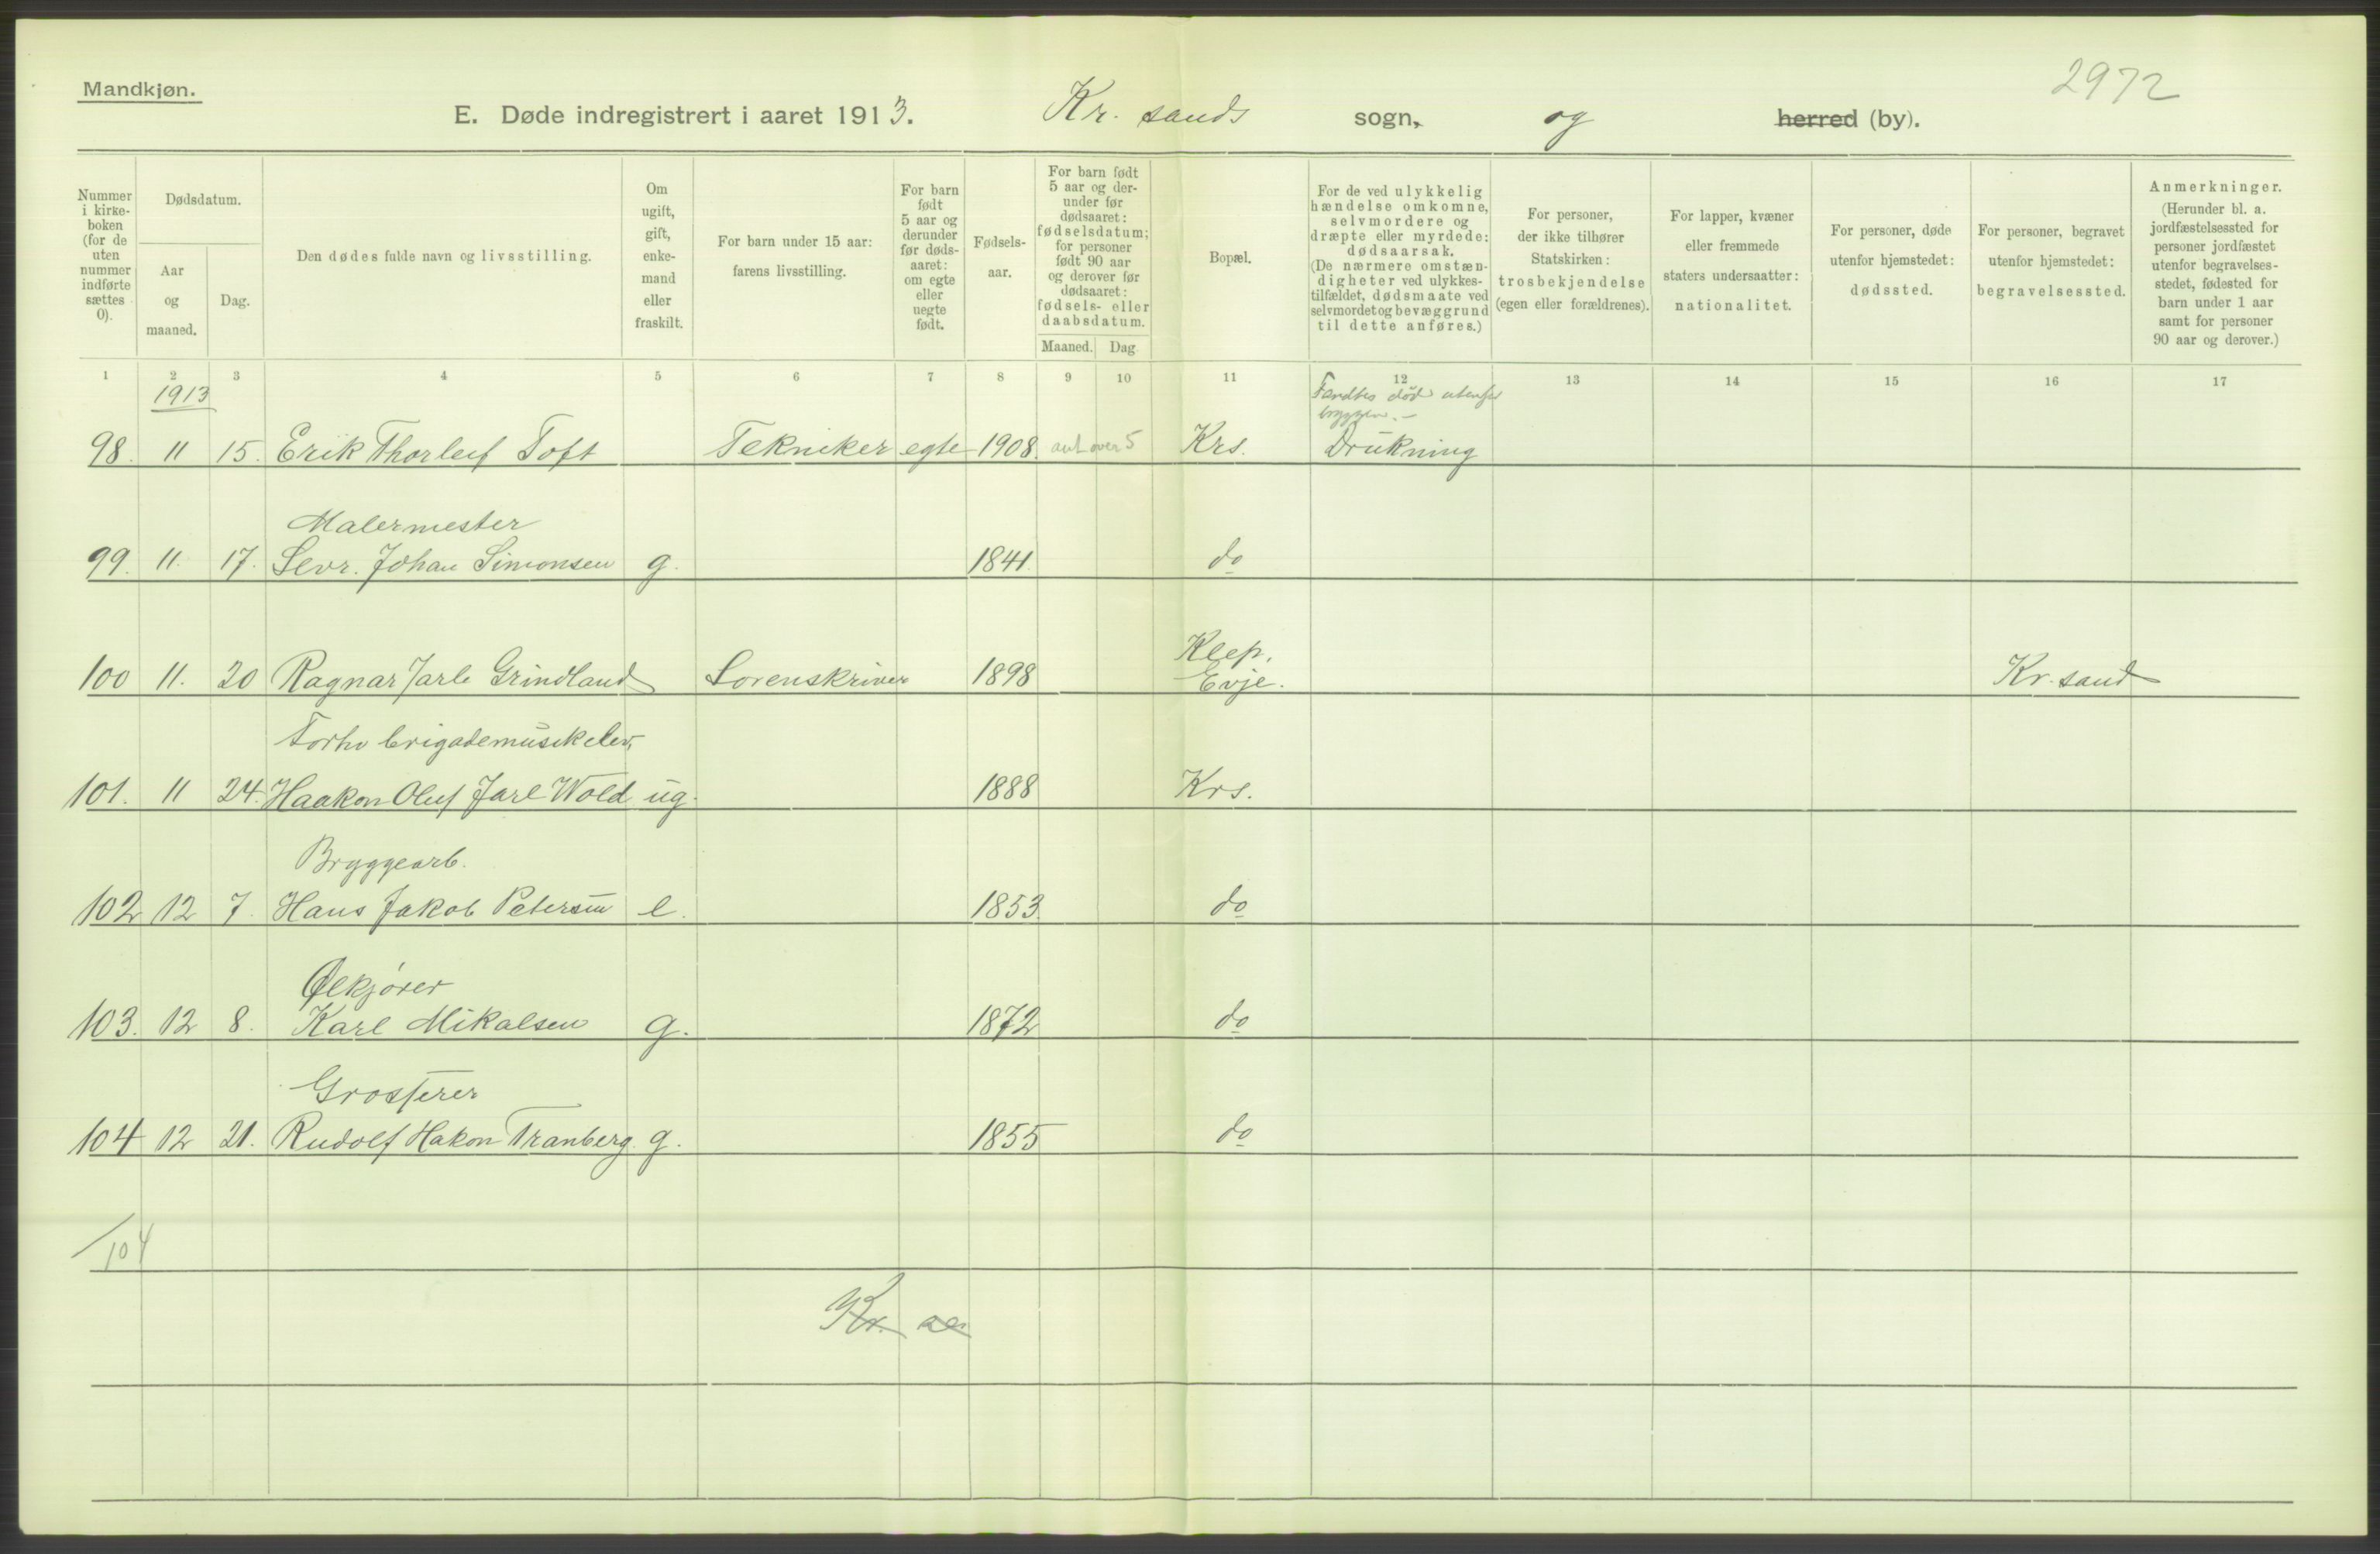 2972
Mandkjøn.
E. Døde indregistrert i aaret 1913. Kr. sands sogn, og herred (by).
Nummer i kirke-boken (for de uten nummer indførte sættes 0).
Dødsdatum.
Aar og maaned.
Dag.
Den dødes fulde navn og livsstilling.
Om ugift, gift, enke-mand eller fraskilt.
For barn under 15 aar: farens livsstilling.
For barn født 5 aar og derunder før døds-aaret: om egte eller uegte født.
Fødsels-aar.
For barn født 5 aar og der-under før dødsaaret: fødselsdatum; for personer født 90 aar og derover før dødsaaret: fødsels- eller daabsdatum.
Maaned. Dag
Bopæl.
For de ved ulykkelig hændelse omkomne, selvmordere og dræpte eller myrdede: dødsaarsak. (De nærmere omstæn-digheter ved ulykkes-tilfældet, dødsmaate ved selvmordet og bevæggrund til dette anføres.)
For personer, der ikke tilhører Statskirken: trosbekjendelse (egen eller forældrenes).
For lapper, kvæner eller fremmede staters undersaatter: nationalitet.
For personer, døde utenfor hjemstedet: dødssted.
For personer, begravet utenfor hjemstedet: begravelsessted.
Anmerkninger. (Herunder bl. a. jordfæstelsessted for personer jordfæstet utenfor begravelses-stedet, fødested for barn under 1 aar samt for personer 90 aar og derover.)
1 2 3 4 5 6 7 8 9 10 11 12 13 14 15 16 17
1913
Fandtes død utenfor
bryggen.-
98. 11 15. Erik Thorleif Toft Tekniker egte 1908. ant over 5 Krs. Drukning
Malermester
99. 11. 17. Sevr. Johan Simonsen g. 1841. do
Klep.
100 11. 20 Ragnar Jarle Grindland Sorenskriver 1898 Evje. Kr. sand
Forhv brigademusikelev,
101. 11 24. Haakon Oluf Jarl Wold ug. 1888 Krs.
Bryggearb.
102 12 7. Hans Jakob Petersen e. 1853. do
Ølkjører
103. 12 8. Karl Mikalsen g. 1872 do
Grosserer
104 12 21. Rudolf Hakon Tranberg. g. 1855 do
104
Kr.